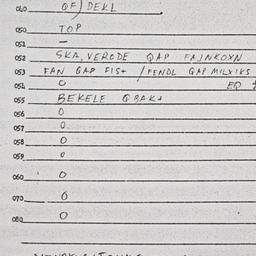 040 OF) DEKL
050 TOP
051 –
052 SKA, VERODE QAP FAJNKOYN
053 FAN QAP FIS+ / FENDL QAP MILXIKS
054 O EQ
055 BEKELE QBAK+
056 O
057 O
058 O
059 O
060 O
070 O
080 O